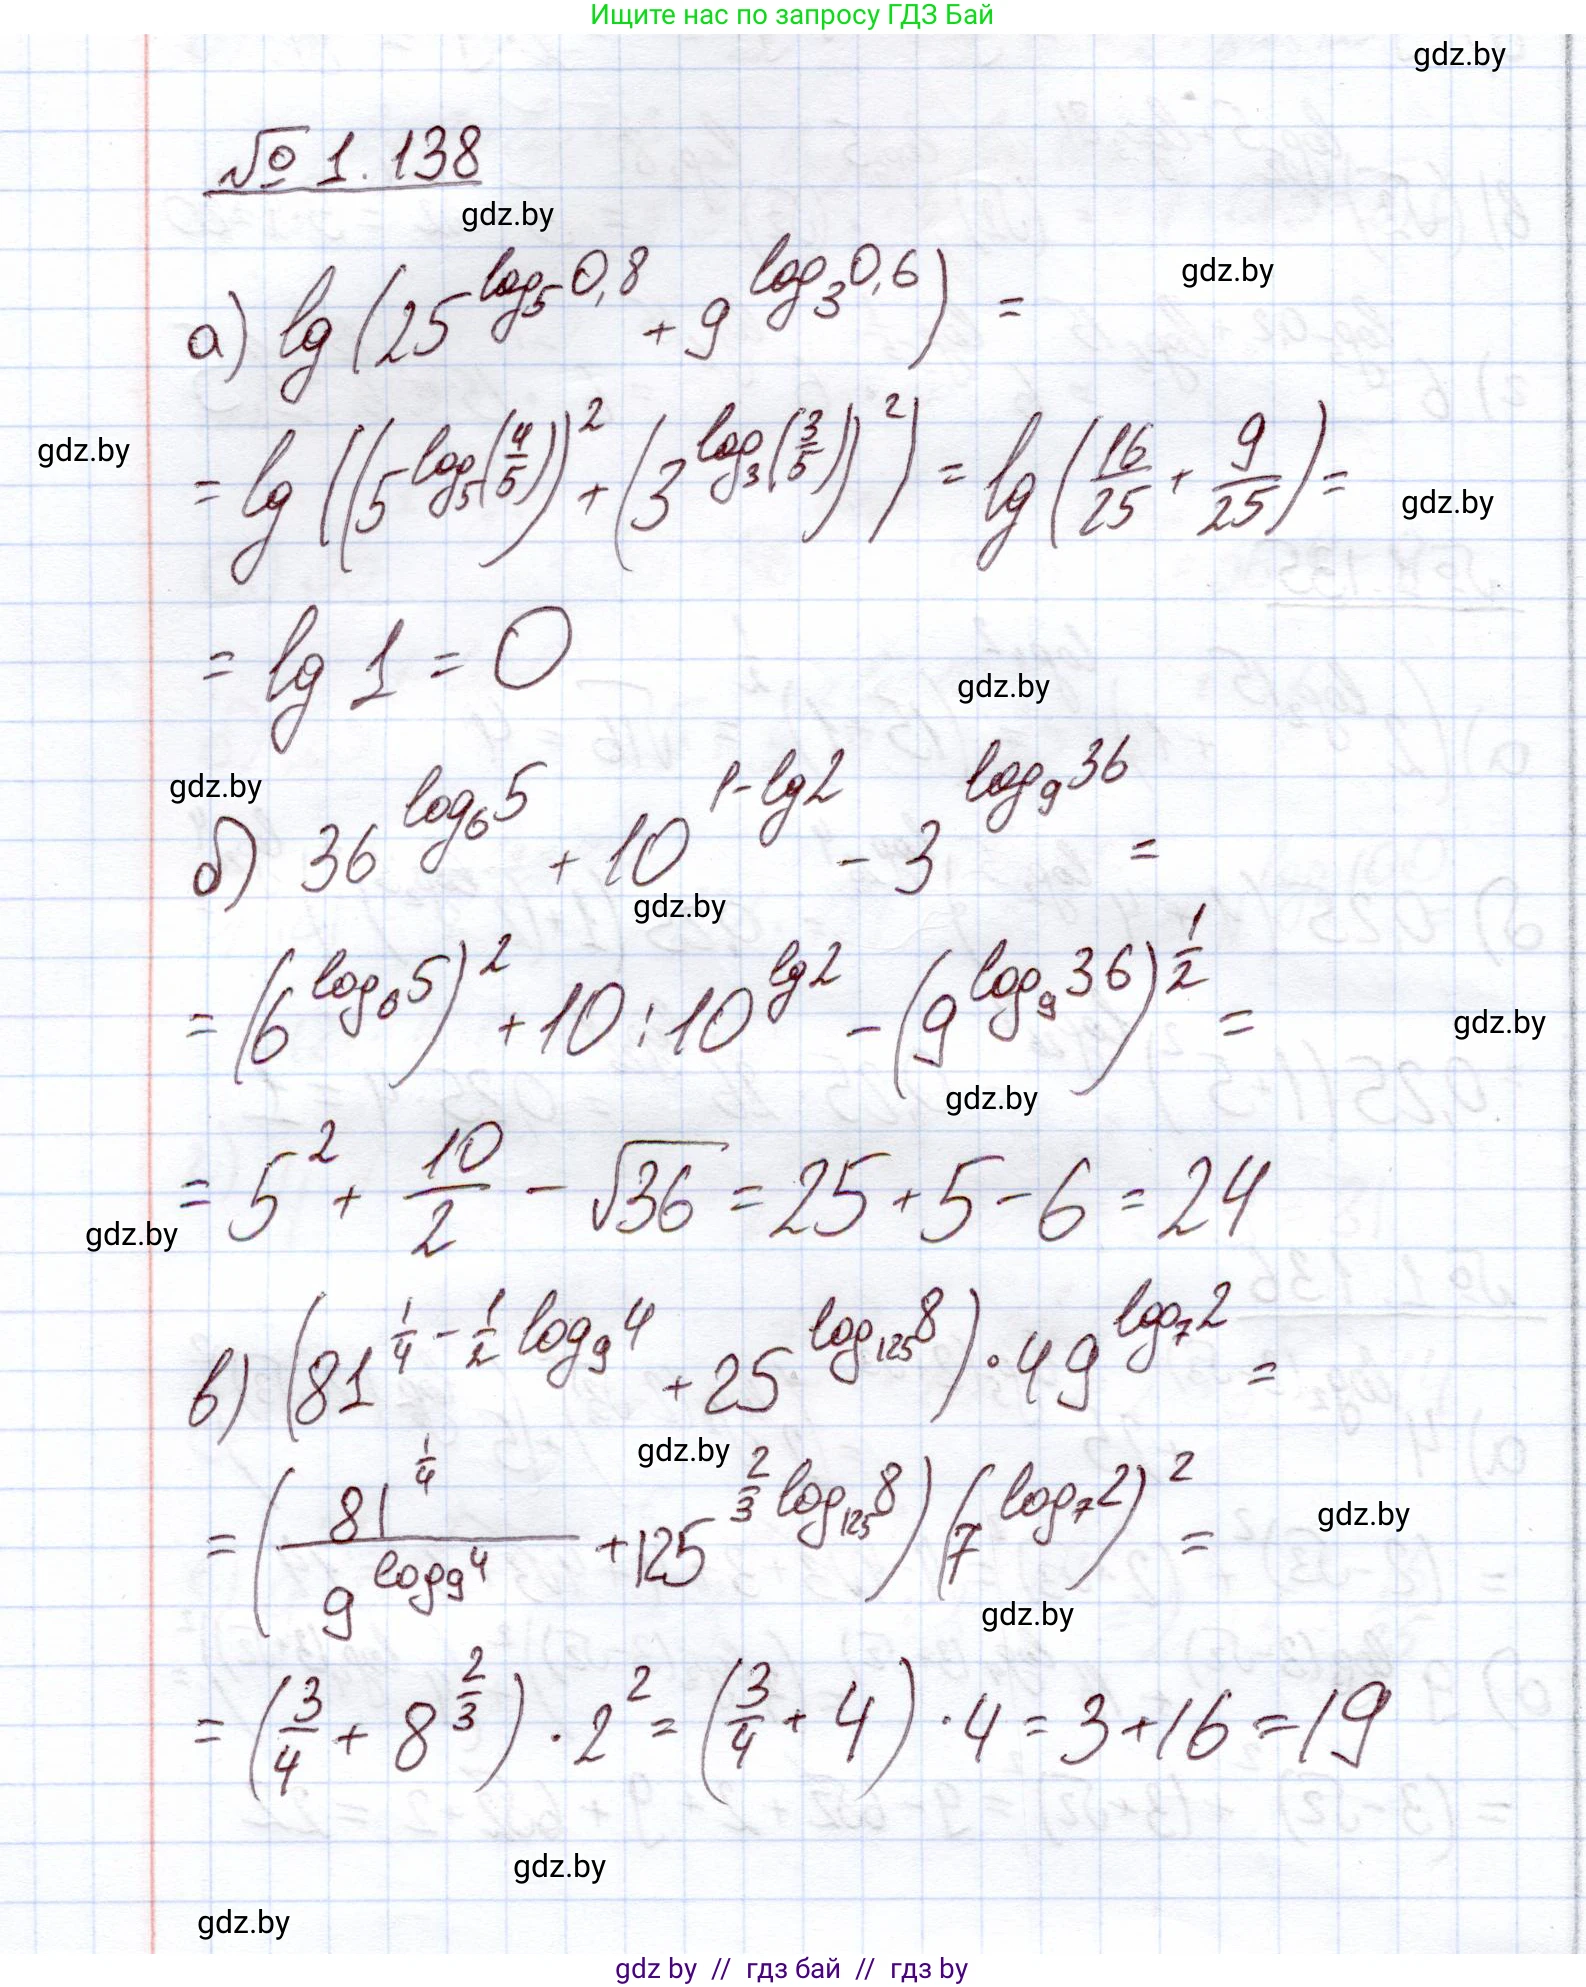 Ищите нас по запросу ГДЗ Бай
gdz.by
№ 1.138
gdz.by
gdz.by
а) lg(25^(log₅0,8) + 9^(log₃0,6)) =
gdz.by
= lg((5^(log₅(4/5)))² + (3^(log₃(3/5)))²) = lg(16/25 + 9/25) =
gdz.by
= lg 1 = 0
gdz.by
gdz.by
б) 36^(log₆5) + 10^(1-lg2) - 3^(log₉36) =
gdz.by
= (6^(log₆5))² + 10 : 10^(lg2) - (9^(log₉36))^(1/2) =
gdz.by
gdz.by
= 5² + 10/2 - √36 = 25 + 5 - 6 = 24
gdz.by
в) (81^(1/4 - 1/2 log₉4) + 25^(log₁₂₅8)) · 49^(log₇2) =
gdz.by
= (81^(1/4) / 9^(log₉4) + 125^(2/3 log₁₂₅8)) (7^(log₇2))² =
gdz.by
gdz.by
= (3/4 + 8^(2/3)) · 2² = (3/4 + 4) · 4 = 3 + 16 = 19
gdz.by
gdz.by
gdz by // гдз бай // гдз by